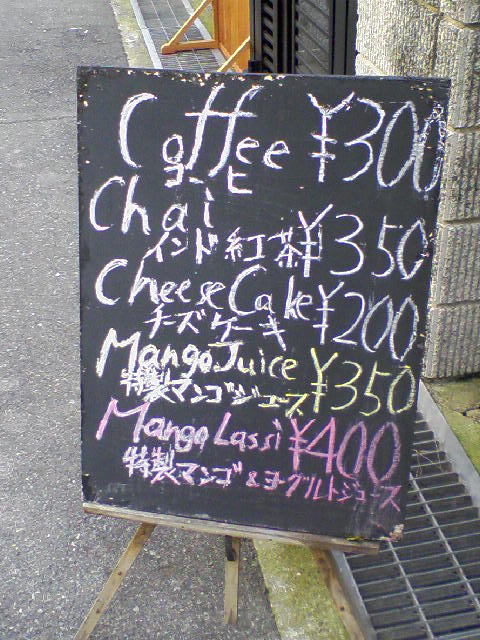 Coffee ¥300
コーヒ
Chai
インド紅茶 ¥350
CheeseCake ¥200
チーズケーキ
Mango Juice ¥350
特製マンゴジュース
Mango Lassi ¥400
特製マンゴ&ヨーグルトジュース